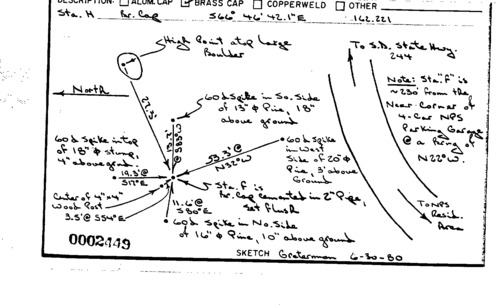 DESCRIPTION: ☐ ALUM. CAP ☑ BRASS CAP ☐ COPPERWELD ☐ OTHER
Sta. H Br. Cap S66° 46' 42.1"E 162.221
High Point atop Large
Boulder
To S.D. State Hwy.
244
Note: Sta. "F" is
~230' from the
Near Corner of
4-Car NPS
Parking Garage
@ a Bring of
N22°W.
North
27.3'
60d Spike in So. Side
of 13" φ Pine, 18"
above ground
60d Spike in top
of 18" φ stump,
4" above grnd.
60d Spike
in West
Side of 20" φ
Pine, 3' above
Ground
53.3' @
N32°W
19.3' @
S17°E
Sta. F is
Br. Cap cemented in 2" Pipe,
set flush
Center of 4"x4"
Wood Post
3.5' @ S54°E
11.6' @
S80°E
60d Spike in No. Side
of 16" φ Pine, 10" above ground
To NPS
Resid.
Area
0002449
SKETCH Greterman 6-30-80